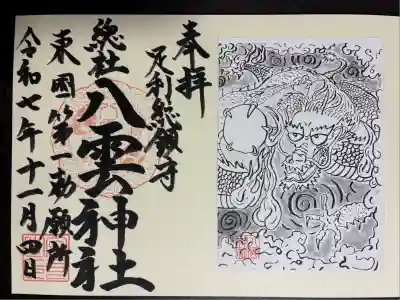 奉拝
足利総鎮守
総社八雲神社
東国第一勅願所
令和七年十一月四日